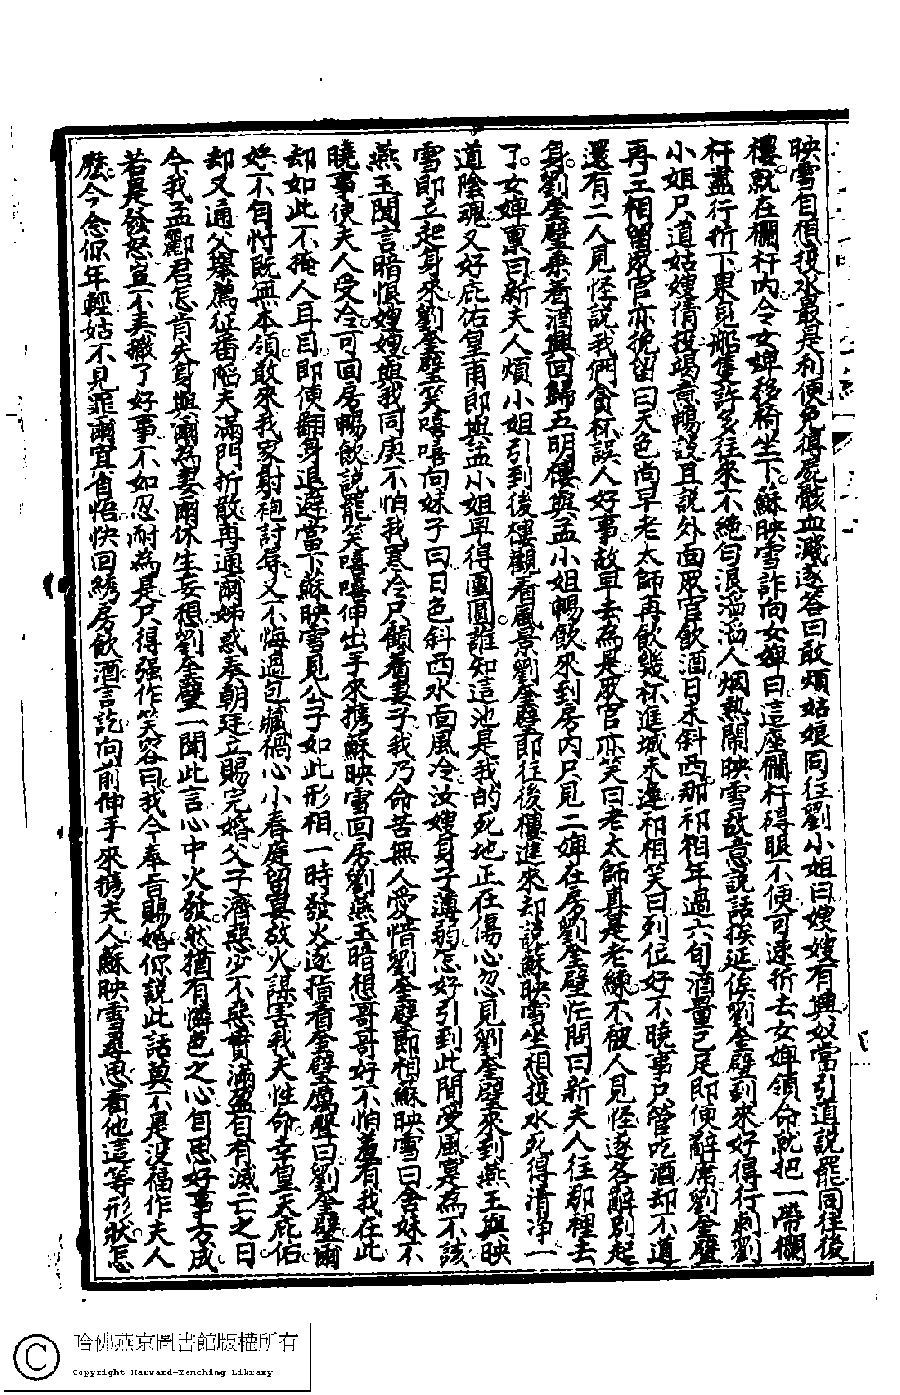 映雪自想投水最是利便免得屍骸血濺遂答曰敢煩姑娘同往劉小姐曰嫂嫂有興奴當引道說罷同往後
樓就在欄杆內令女婢移椅坐下蘇映雪詐向女婢曰這座欄杆碍眼不便可速折去女婢領命就把一帶欄
杆盡行折下果見船隻許多往來不絕勻浪滔滔人烟熱鬧映雪故意說話挨延俟劉奎璧到來好得行刺劉
小姐只道姑嫂情投竭意暢談且說外面眾官飲酒日未斜西那祁相年過六旬酒量已足即便辭席劉奎璧
再三相留眾官亦挽留曰天色尚早老太師再飲幾杯進城未遲祁相笑曰列位好不曉事只管吃酒却不道
還有二人見怪說我們貪杯誤人好事故早去為是眾官亦笑曰老太師真是老練不被人見怪遂各辭別起
身劉奎璧乘着酒興回歸五明樓與孟小姐暢飲來到房內只見二婢在房劉奎璧忙問曰新夫人往那裡去
了女婢稟曰新夫人煩小姐引到後樓觀看風景劉奎璧即往後樓進來却說蘇映雪坐相投水死得清淨一
道陰魂又好庇佑皇甫郎與孟小姐早得團圓誰知這池是我的死地正在傷心忽見劉奎璧來到燕玉與映
雪即立起身來劉奎璧笑嘻嘻向妹子曰日色斜西水面風冷汝嫂身子薄弱怎好引到此間受風寒為不該
燕玉聞言暗恨嫂嫂與我同庚不怕我寒冷只顧着妻子我乃命苦無人愛惜劉奎璧即相蘇映雪曰舍妹不
曉事使夫人受冷可回房暢飲說罷笑嘻嘻伸出手來携蘇映雪回房劉燕玉暗想哥哥好不怕羞有我在此
却如此不掩人耳目即便翻身退避當下蘇映雪見公子如此形相一時發火遂指着奎璧厲聲曰劉奎璧爾
好不自忖既無本領敢來我家射袍討辱又不悔過包藏禍心小春庭留宴放火謀害我夫性命幸皇天庇佑
却又通父舉薦征番陷夫滿門折散再通爾姊惑奏朝廷立賜完婚父子濟惡少不矣貫滿盈自有滅亡之日
今我孟酈君怎肯失身與爾為妻爾休生妄想劉奎璧一聞此言心中火發然猶有憐色之心自思好事方成
若是發怒豈不美殲了好事不如忍耐為是只得强作笑容曰我今奉旨賜婚你說此話莫不是沒福作夫人
麽今念你年輕姑不見罪爾宜省悟快回綉房飲酒言訖向前伸手來携夫人蘇映雪尋思看他這等形狀怎
哈佛燕京圖書館版權所有
Copyright Harvard-Yenching Library